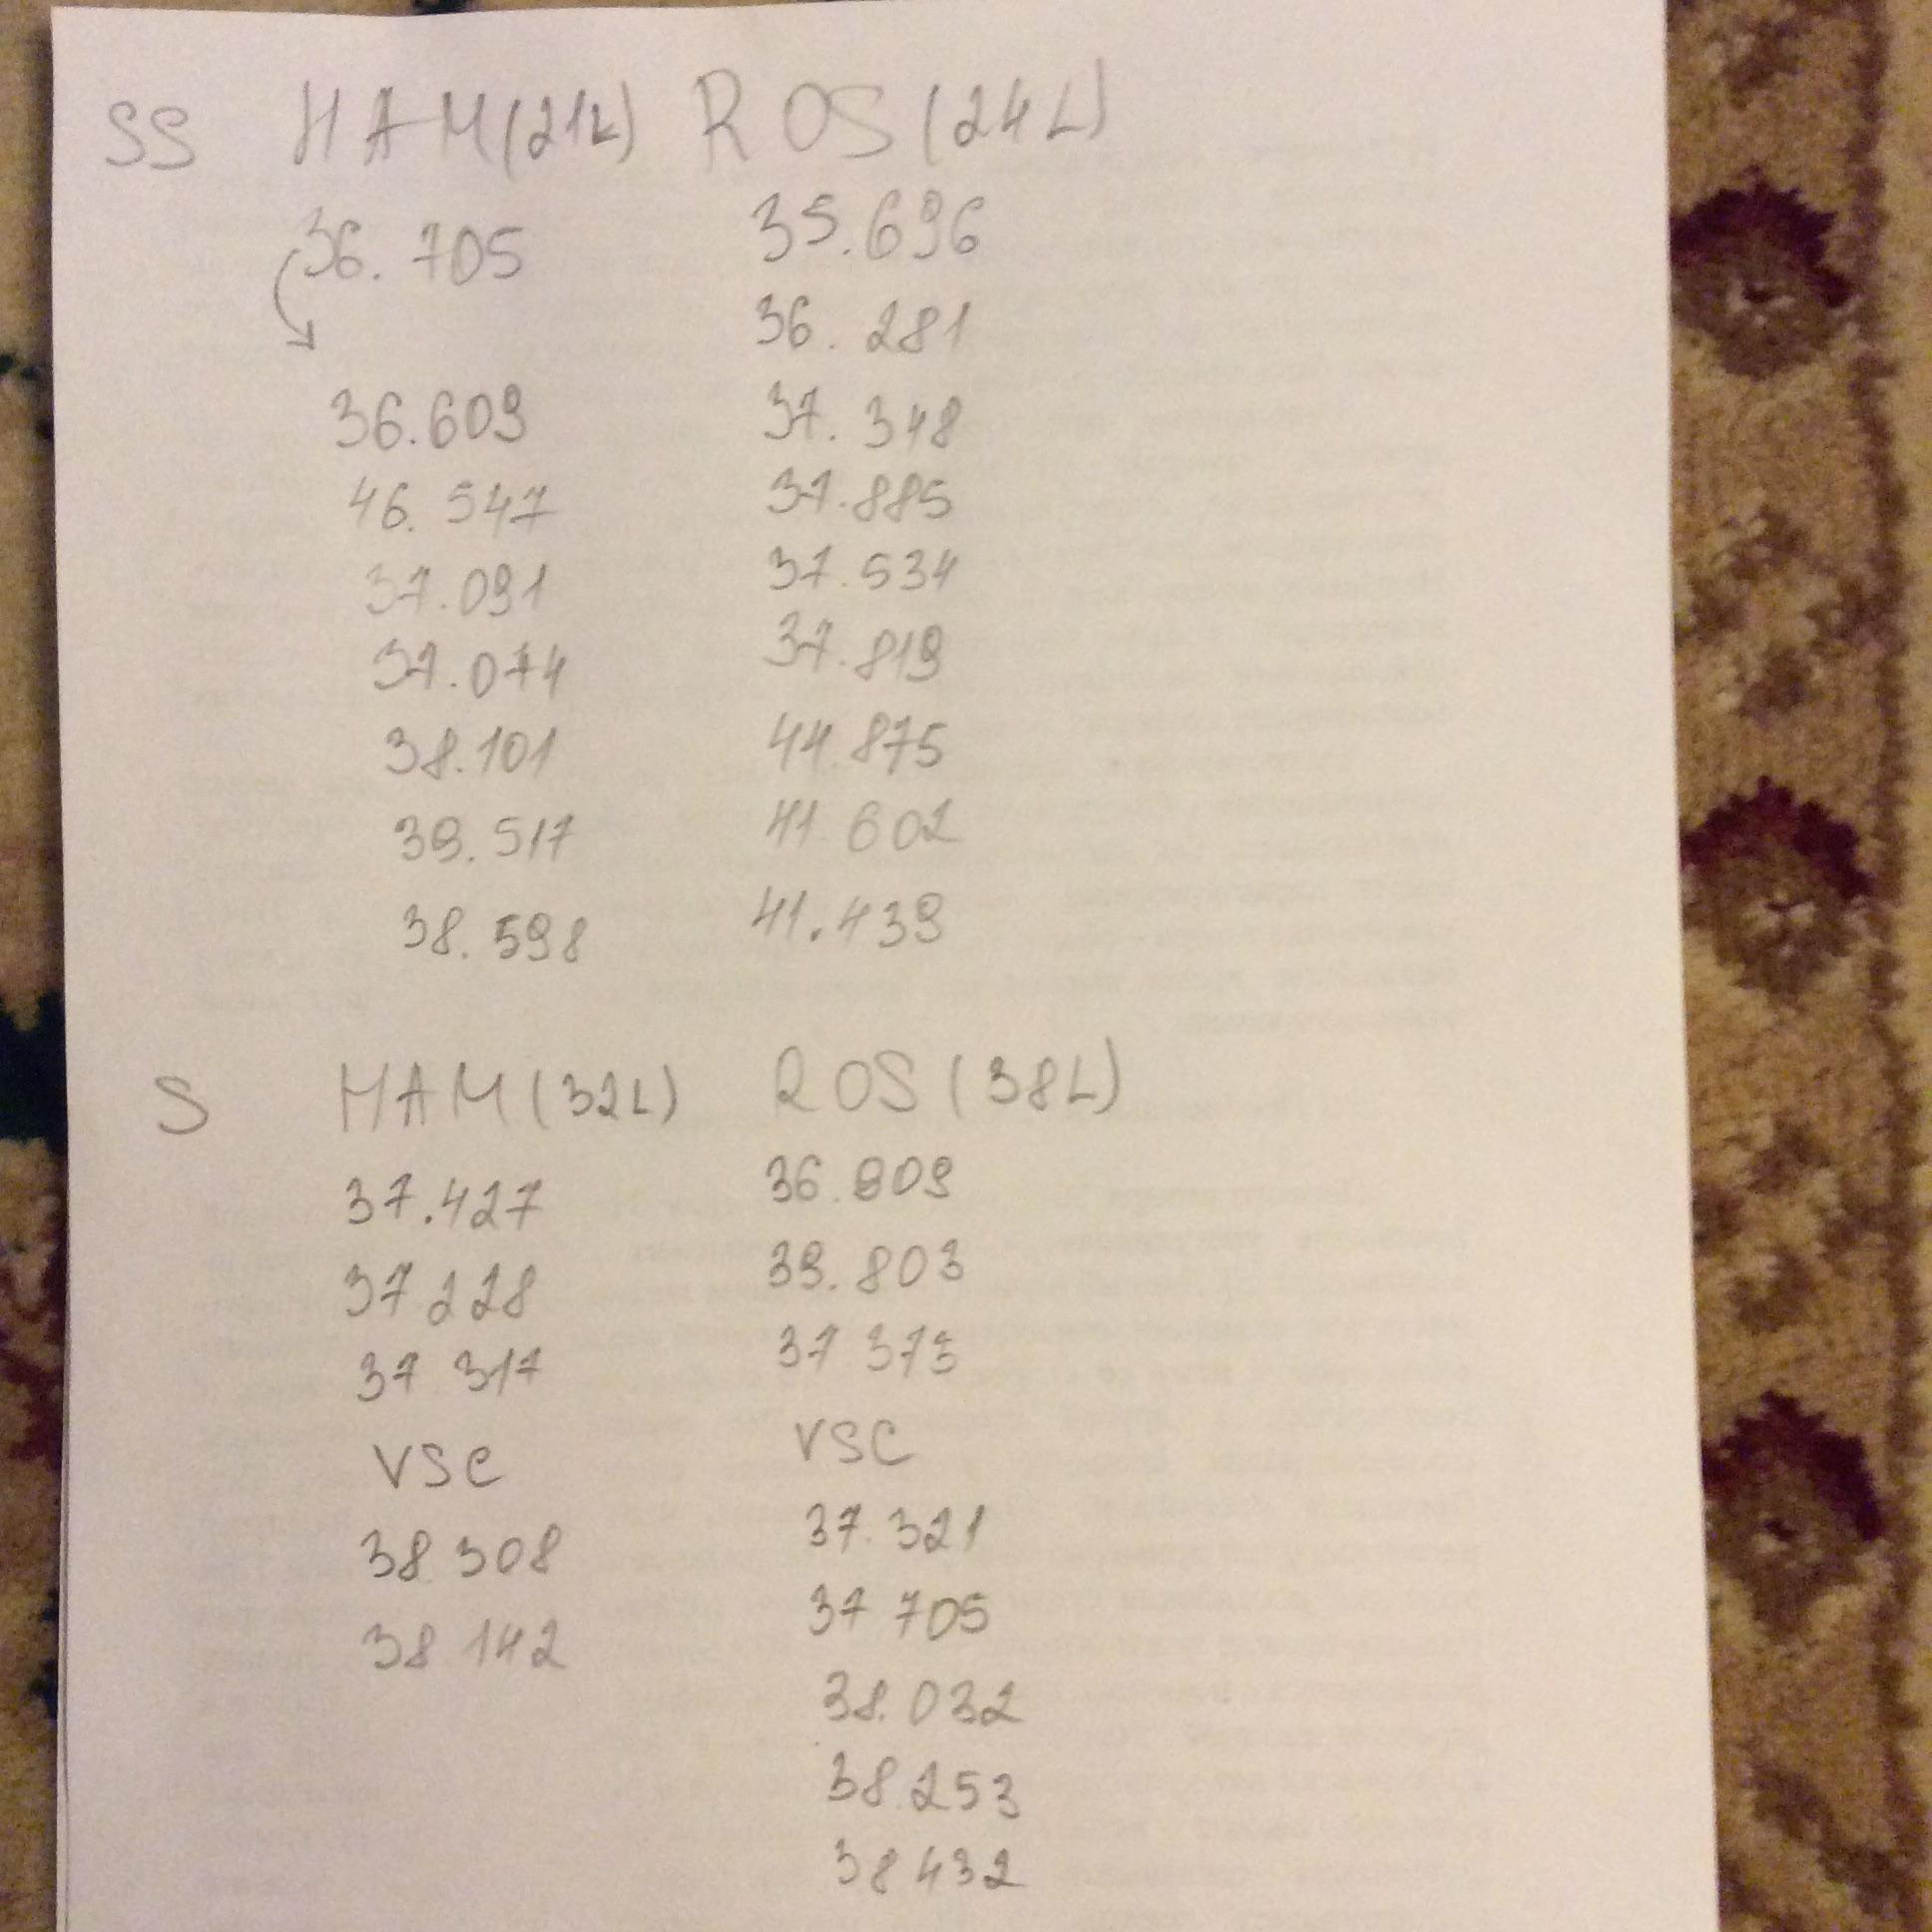 SS HAM(21L) ROS(24L)
36.705 35.696
36.281
36.609 37.348
46.547 37.885
37.091 37.534
37.074 37.819
38.101 44.875
39.517 41.602
38.598 41.439
S HAM(32L) ROS(38L)
37.427 36.909
37.228 39.803
37 317 37 373
VSC VSC
38 308 37.321
38 142 37 705
38.032
38.253
38 432